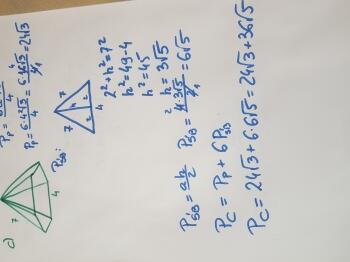 c)
7
4
P_P = 6·4²√3/4 = 6·16√3/4 = 24√3
P_ŚB:
7
h
2
2
4
2²+h²=7²
h²=49-4
h²=45
h=3√5
P_ŚB = ah/2  P_ŚB = 4·3√5/2 = 6√5
P_C = P_P + 6P_ŚB
P_C = 24√3 + 6·6√5 = 24√3 + 36√5